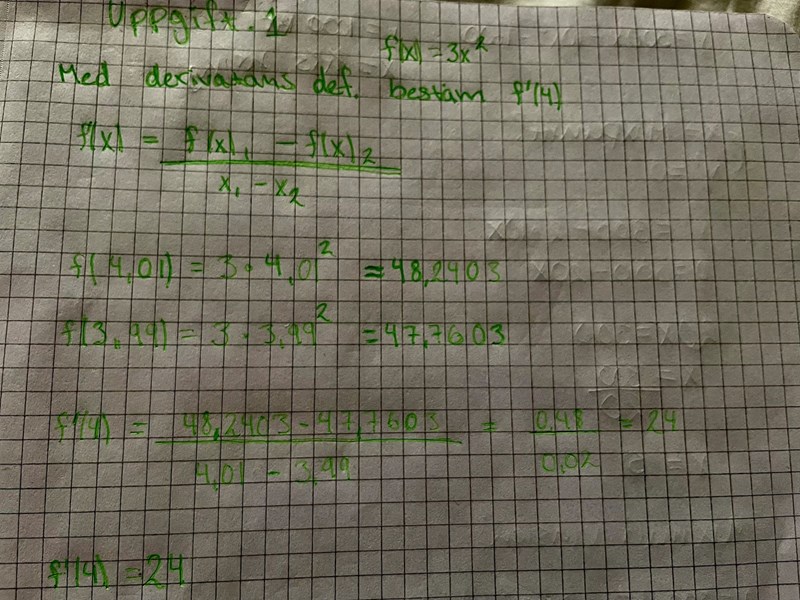 Uppgift. 1
f(x) = 3x²
Med derivatans def. bestäm f'(4)
f'(x) = f(x)₁ - f(x)₂
x₁ - x₂
f(4,01) = 3 · 4,01² = 48,2403
f(3,99) = 3 · 3,99² = 47,7603
f'(4) = 48,2403 - 47,7603 = 0,48 = 24
4,01 - 3,99 0,02
f'(4) = 24